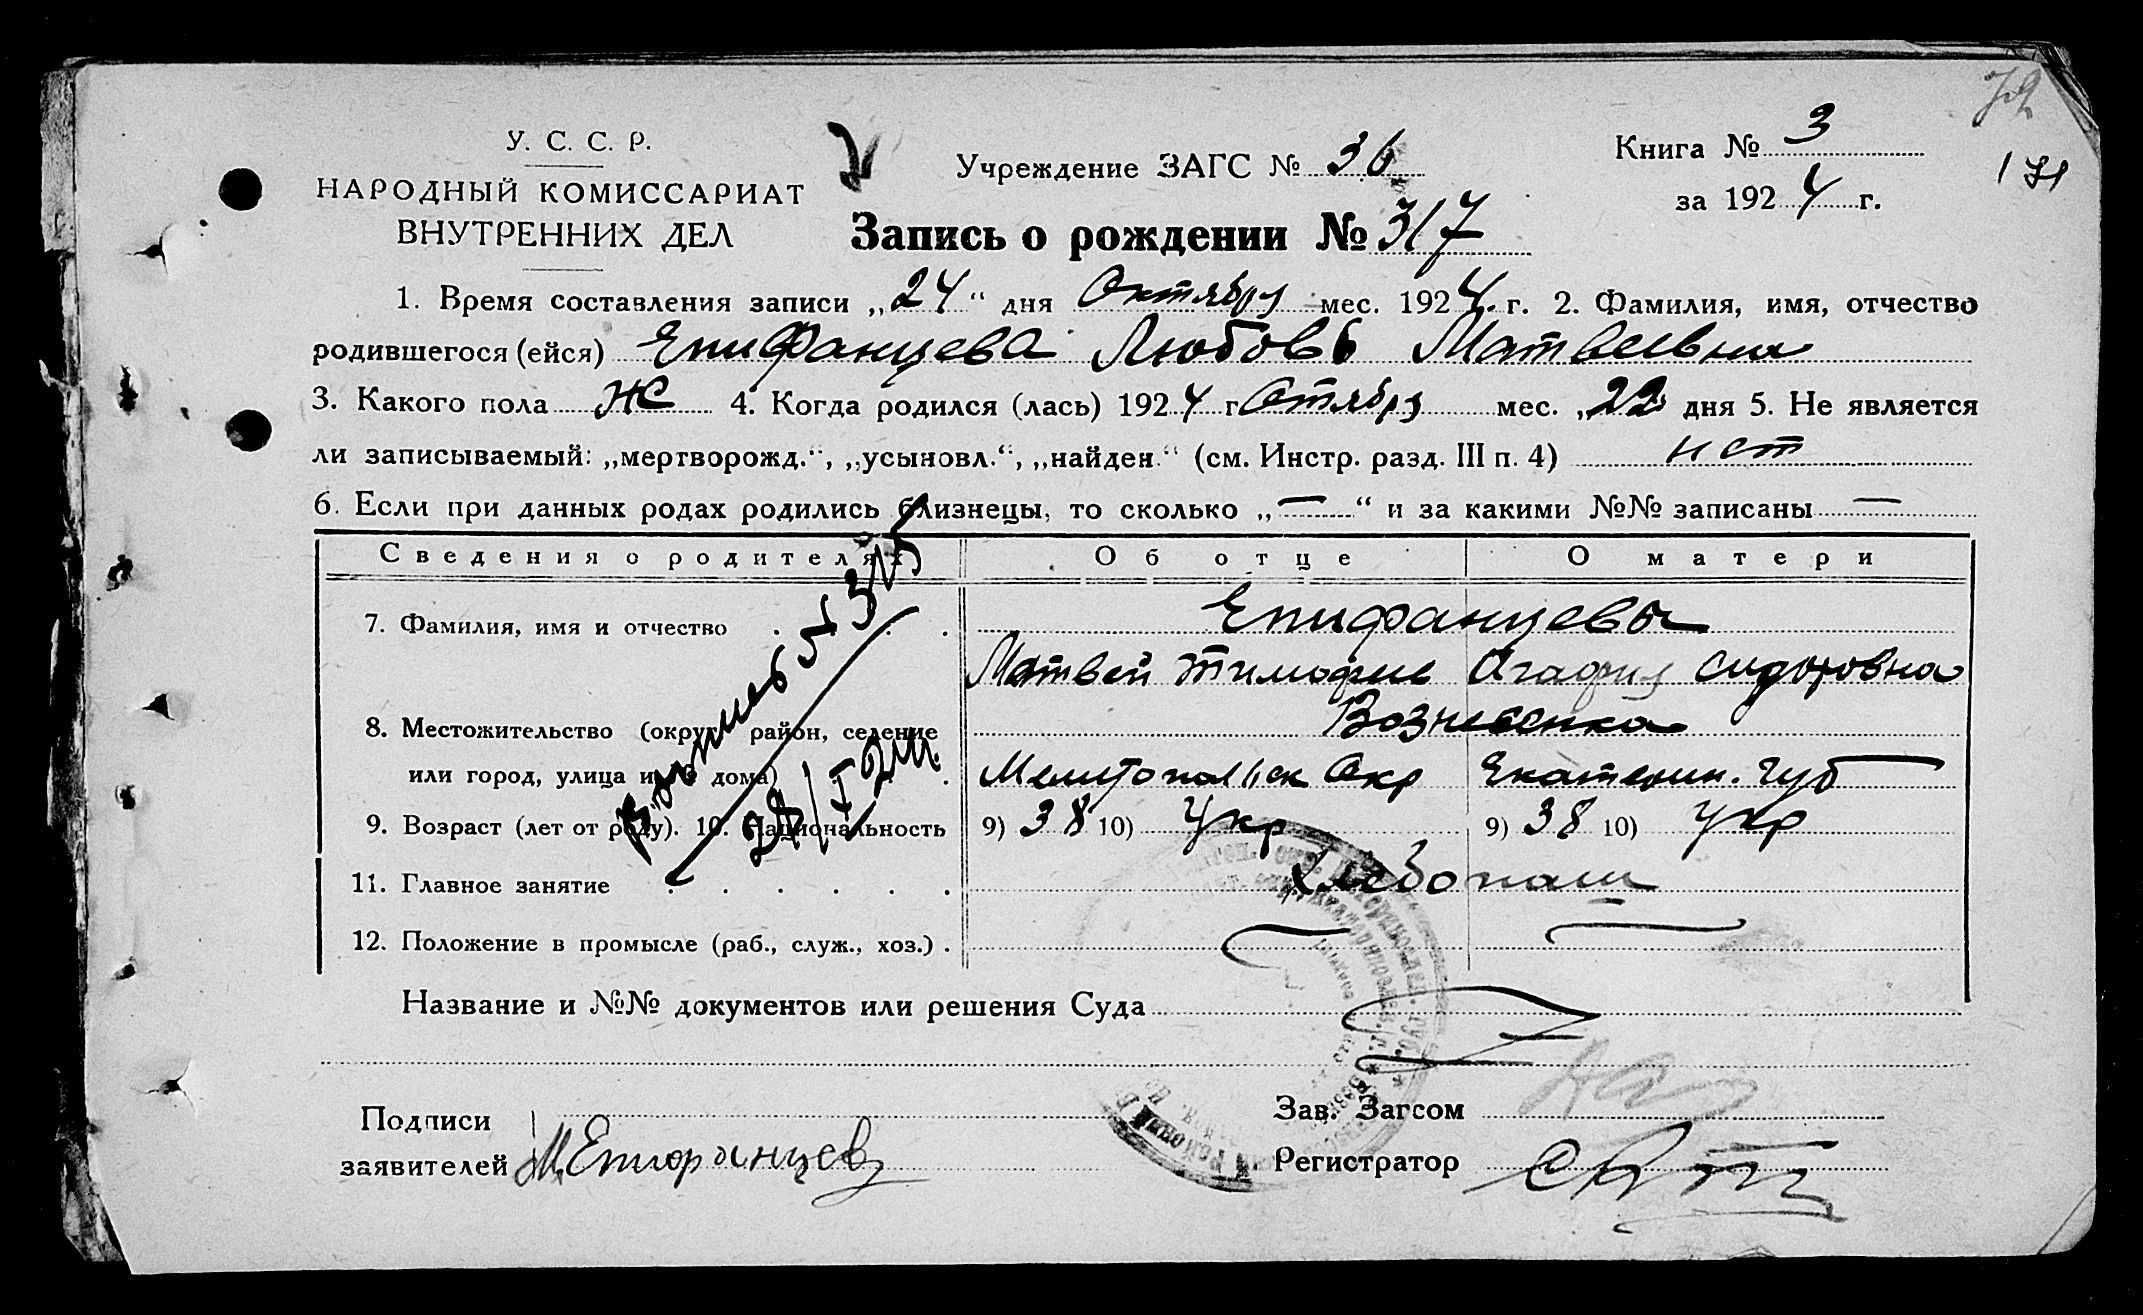 72
У. С. С. Р.
НАРОДНЫЙ КОМИССАРИАТ
ВНУТРЕННИХ ДЕЛ
Учреждение ЗАГС № 36
Книга № 3
за 1924 г.
171
Запись о рождении № 317
1. Время составления записи „24“ дня Октября мес. 1924 г. 2. Фамилия, имя, отчество
родившегося (ейся) Епифанцева Любовь Матвеевна
3. Какого пола Ж 4. Когда родился (лась) 1924 г Отября мес. „22 дня 5. Не является
ли записываемый: „мертворожд.“, „усыновл.“, „найден.“ (см. Инстр. разд. III п. 4) нет
6. Если при данных родах родились близнецы, то сколько „—“ и за какими №№ записаны —
Сведения о родителях Об отце О матери
7. Фамилия, имя и отчество Епифанцевы
Матвей Тимофие Агафия Сидоровна
8. Местожительство (округ, район, селение Вознесенка
или город, улица и № дома) Мелитопольск Окр Екатерин. губ
9. Возраст (лет от роду). 10. Национальность 9) 38 10) Укр 9) 38 10) Укр
11. Главное занятие Хлебопаш
12. Положение в промысле (раб., служ., хоз.) . — —
Название и №№ документов или решения Суда
Подписи
заявителей М Епифанцев
Зав. Загсом
Регистратор